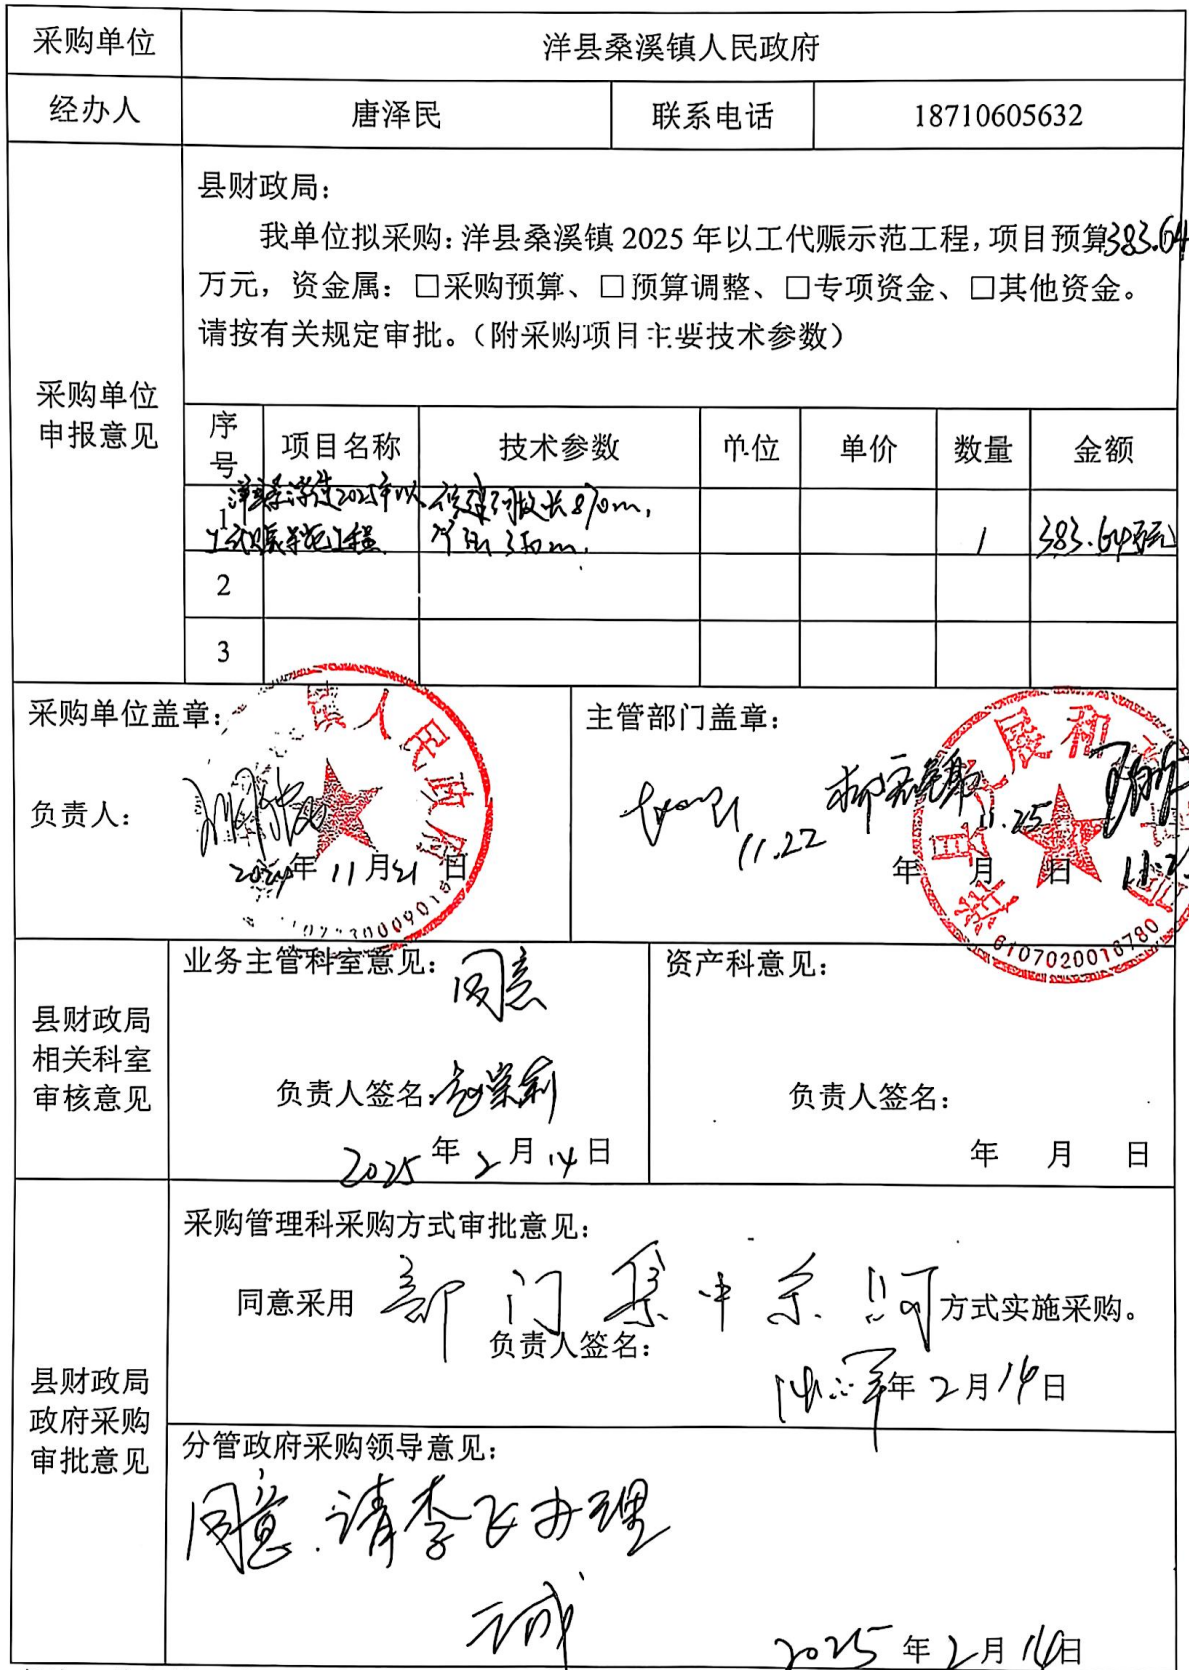 采购单位 洋县桑溪镇人民政府
经办人 唐泽民 联系电话 18710605632
采购单位申报意见
县财政局：
我单位拟采购：洋县桑溪镇 2025 年以工代赈示范工程，项目预算383.64
万元，资金属：□采购预算、□预算调整、□专项资金、□其他资金。
请按有关规定审批。（附采购项目主要技术参数）
序号 项目名称 技术参数 单位 单价 数量 金额
1 洋县桑溪镇2025年以工代赈示范工程 长870m, 1 383.64万元
2
3
采购单位盖章：
镇人民政府
负责人：
2024年11月21日
主管部门盖章：
展和
11.22
11.25
年 月 日
6107020016780
县财政局相关科室审核意见
业务主管科室意见：
同意
负责人签名：
2025年2月14日
资产科意见：
负责人签名：
年 月 日
县财政局政府采购审批意见
采购管理科采购方式审批意见：
同意采用 部门集中采购 方式实施采购。
负责人签名：
年2月14日
分管政府采购领导意见：
同意.请李飞办理
2025年2月14日